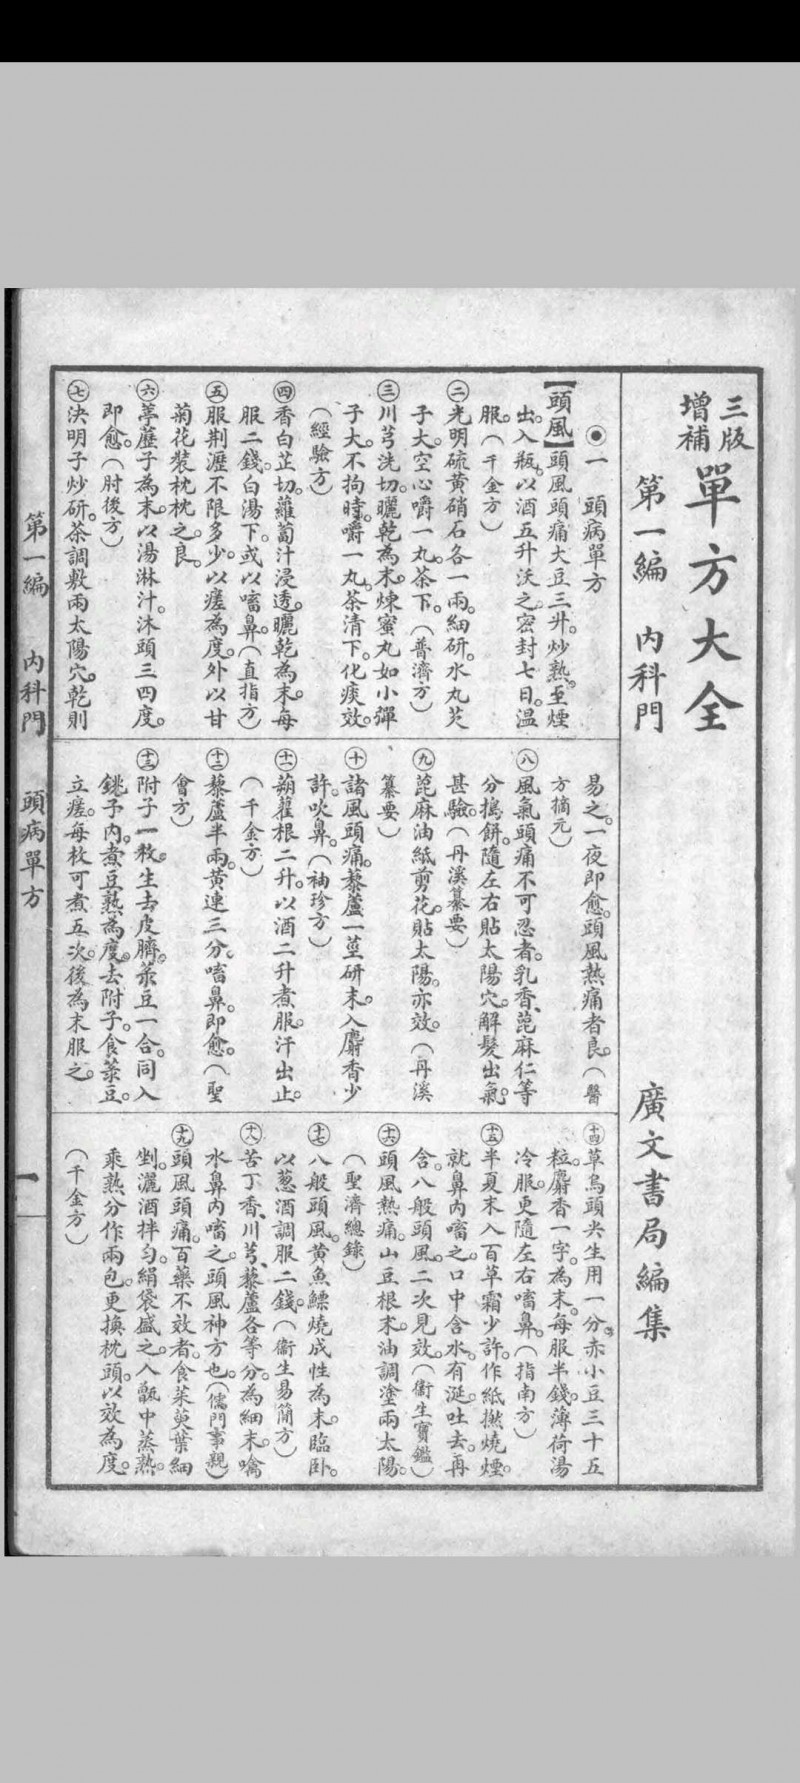 三版增補單方大全
第一編　內科門　廣文書局編集
◉一　頭病單方
【頭風】頭風頭痛大豆三升。炒熟。至煙
出。入瓶。以酒五升沃之。密封七日。溫
服。（千金方）
㊁光明硫黃硝石各一兩。細研。水丸芡
子大。空心嚼一丸。茶下。（普濟方）
㊂川芎洗切。曬乾為末。煉蜜丸如小彈
子大。不拘時。嚼一丸。茶清下。化痰效。
（經驗方）
㊃香白芷切。蘿蔔汁浸透。曬乾為末。每
服二錢。白湯下。或以嗜鼻。（直指方）
㊄服荆瀝不限多少。以瘥為度。外以甘
菊花裝枕枕之。良。
㊅葶藶子為末。以湯淋汁。沐頭三四度。
即愈。（肘後方）
㊆決明子炒研。茶調敷兩太陽穴。乾則
易之。一夜即愈。頭風熱痛者良。（醫
方摘元）
㊇風氣頭痛不可忍者。乳香、蓖麻仁等
分搗餅。隨左右貼太陽穴。解髮出氣。
甚驗。（丹溪纂要）
㊈蓖麻油紙剪花。貼太陽。亦效。（丹溪
纂要）
㊉諸風頭痛。藜蘆一莖研末。入麝香少
許。吹鼻。（袖珍方）
十一蒴藋根二升。以酒二升煮服。汗出止。
（千金方）
十二藜蘆半兩。黃連三分。嗜鼻。即愈。（聖
會方）
十三附子一枚。生去皮臍。菉豆一合。同入
銚子內。煮豆熟為度。去附子。食菉豆。
立瘥。每枚可煮五次。後為末服之。
（千金方）
十四草烏頭尖生用一分。赤小豆三十五
粒。麝香一字。為末。每服半錢。薄荷湯
冷服。更隨左右嗜鼻。（指南方）
十五半夏末入百草霜少許。作紙撚燒煙。
就鼻內嗜之。口中含水。有涎吐去。再
含。八般頭風。二次見效。（衞生寶鑑）
十六頭風熱痛。山豆根末。油調塗兩太陽。
（聖濟總錄）
十七八般頭風。黃魚鰾燒成性為末。臨臥。
以葱酒調服二錢。（衞生易簡方）
十八苦丁香、川芎、藜蘆各等分。為細末。噙
水鼻內嗜之。頭風神方也。（儒門事親）
十九頭風頭痛。百藥不效者。食茱萸葉細
剉。灑酒拌勻。絹袋盛之。入甑中蒸熟。
乘熱分作兩包。更換枕頭。以效為度。
（千金方）
第一編　內科門　頭病單方　一